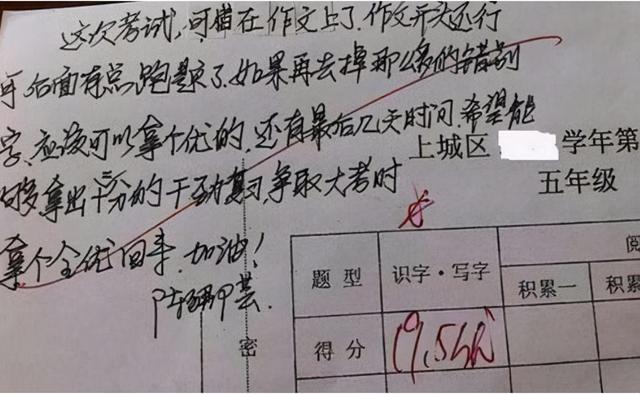 这次考试,可惜在作文上了.作文开头还行
可后面有点跑题了.如果再去掉那么多的错别
字.应该可以拿个优的.还有最后几天时间.希望能
够拿出十二分的干劲复习争取大考时
拿个全优回来.加油!
上城区 学年第
五年级
题型 识字·写字 阅
积累一 积累
得分 19.5
密